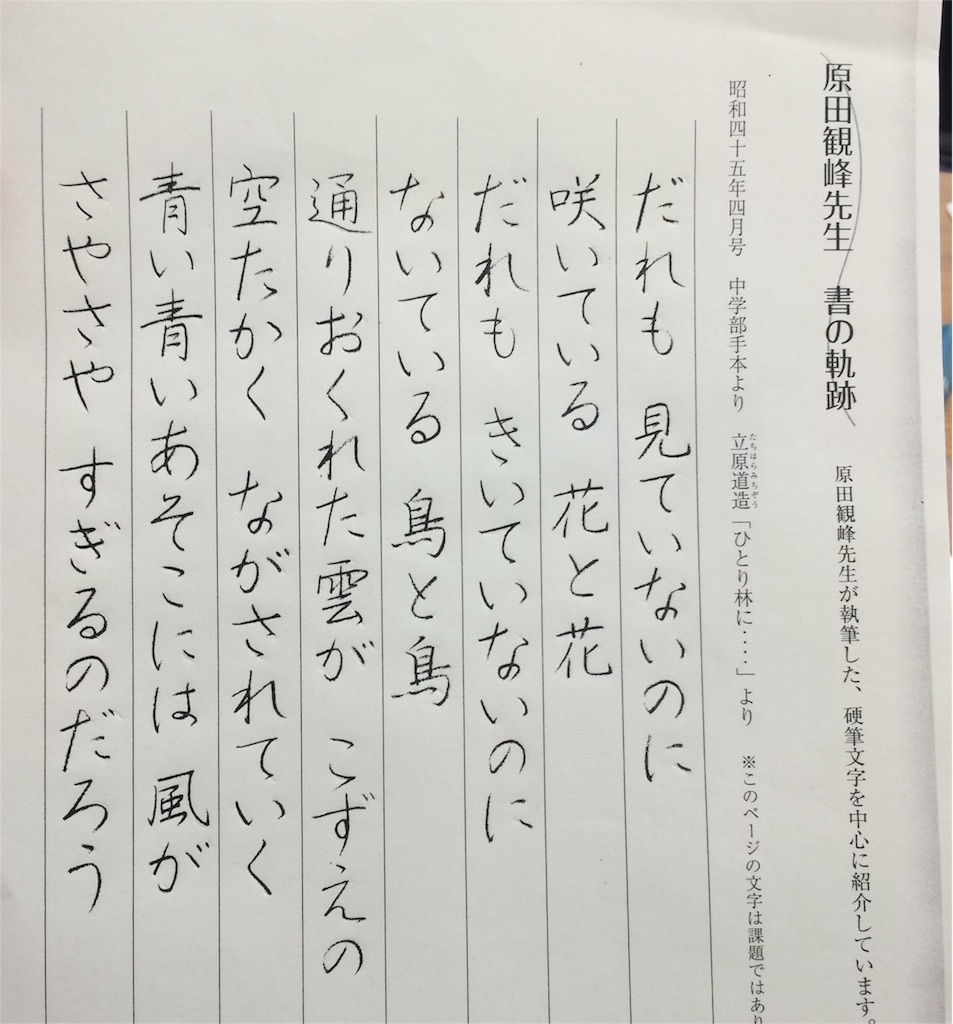 原田観峰先生 書の軌跡 原田観峰先生が執筆した、硬筆文字を中心に紹介しています。
昭和四十五年四月号 中学部手本より 立原道造「ひとり林に‥‥」より ※このページの文字は課題ではあり
たちはらみちぞう
だれも 見ていないのに
咲いている 花と花
だれも きいていないのに
ないている 鳥と鳥
通りおくれた雲が こずえの
空たかく ながされていく
青い青いあそこには 風が
さやさや すぎるのだろう